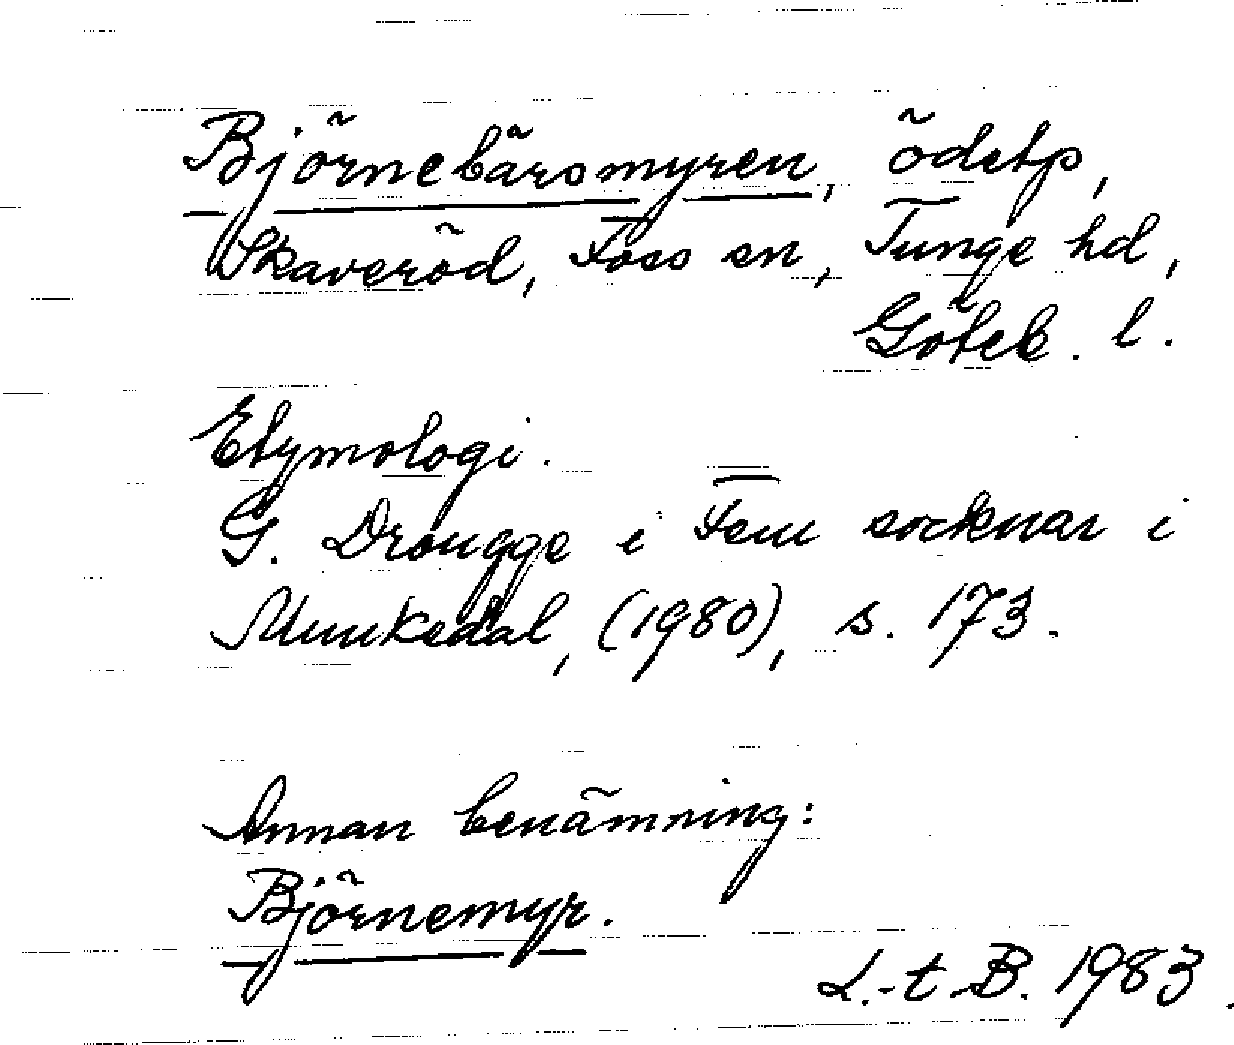 Björnebärsmyren, ödetp,
Skaveröd, Foss sn, Tunge hd,
Göteb. l.
Etymologi.
G. Drougge i Fem socknar i
Munkedal, (1980), s. 173.
Annan benämning:
Björnemyr.
L.-t B. 1983.